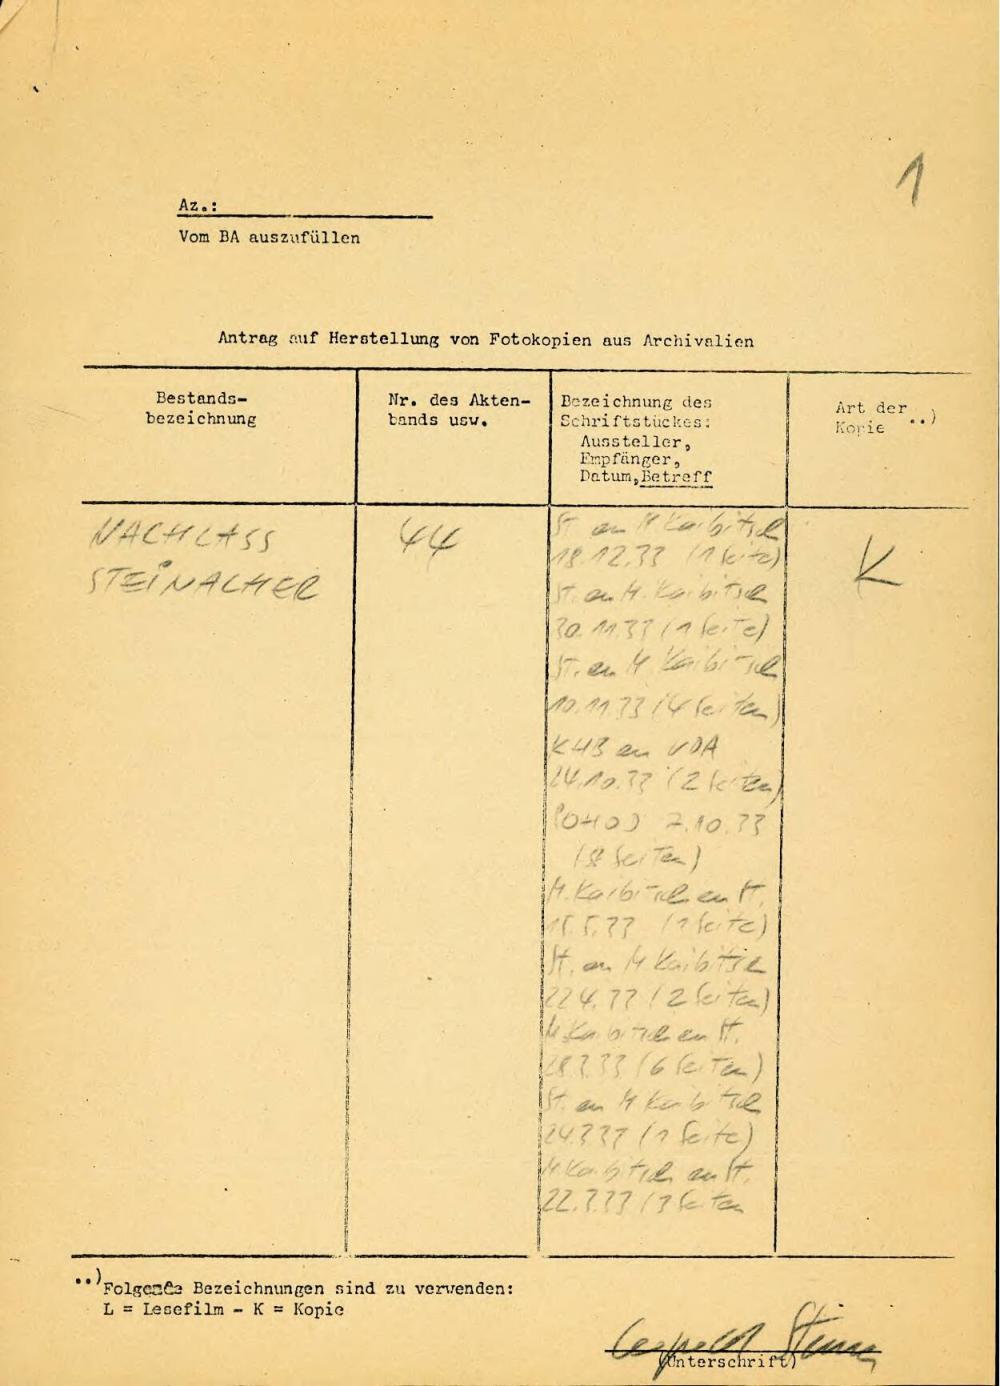 1
Az.:
Vom BA auszufüllen
Antrag auf Herstellung von Fotokopien aus Archivalien
Bestands-
bezeichnung
Nr. des Akten-
bands usw.
Bezeichnung des
Schriftstückes:
Aussteller,
Empfänger,
Datum, Betreff
Art der
Kopie ..)
NACHLASS
STEINACHER
44
St. an M Kaibitsch
18.12.33 (1 Seite)
St. an M. Kaibitsch
30.11.33 (1 Seite)
St. an M Kaibitsch
10.11.33 (4 Seiten)
KHB an VDA
24.10.33 (2 Seiten)
7.10.33
(8 Seiten)
M. Kaibitsch an St.
15.5.33 (1 Seite)
St. an M Kaibitsch
22.4.33 (2 Seiten)
M Kaibitsch an St.
28.3.33 (6 Seiten)
St. an M Kaibitsch
24.3.33 (1 Seite)
M Kaibitsch an St.
22.3.33 (3 Seiten
K
..) Folgende Bezeichnungen sind zu verwenden:
L = Lesefilm - K = Kopie
(Unterschrift)